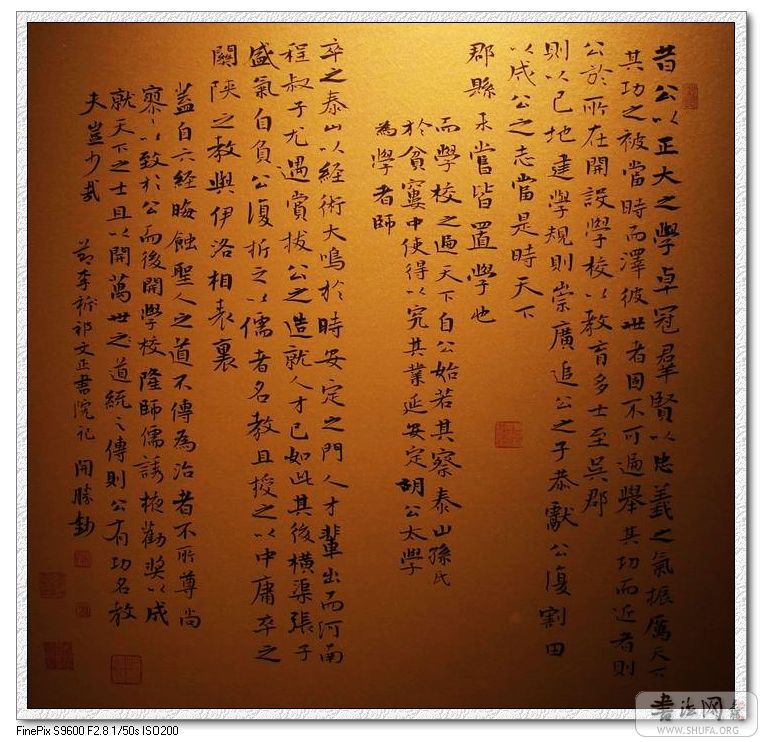 昔公以正大之學卓冠羣賢以忠義之氣振厲天下
其功之被當時而澤彼世者固不可遍舉其功而近者則
公於所在開設學校以教育多士至吳郡
則以己地建學規則崇廣追公之子恭獻公復割田
以成公之志當是時天下
郡縣未嘗皆置學也
而學校之遍天下自公始若其察泰山孫氏
於貧窶中使得以究其業延安定胡公太學
為學者師
卒之泰山以經術大鳴於時安定之門人才輩出而河南
程叔子尤遇賞拔公之造就人才已如此其後橫渠張子
盛氣自負公復折之以儒者名教且授之以中庸卒之
關陝之教與伊洛相表裏
蓋自六經晦蝕聖人之道不傳為治者不所尊尚
寥以致於公而後開學校隆師儒誘掖勸獎以成
就天下之士且以開萬世之道統之傳則公有功名教
夫豈少哉 節李祁文正書院記 開勝勤
書法网
WWW.SHUFA.ORG
FinePix S9600 F2.8 1/50s ISO200